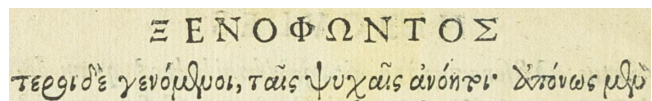 ΞΕΝΟΦΩΝΤΟΣ
τεροι δὲ γενόμενοι, ταῖς ψυχαῖς ἀνόητοι· ἀπόνως μὲν